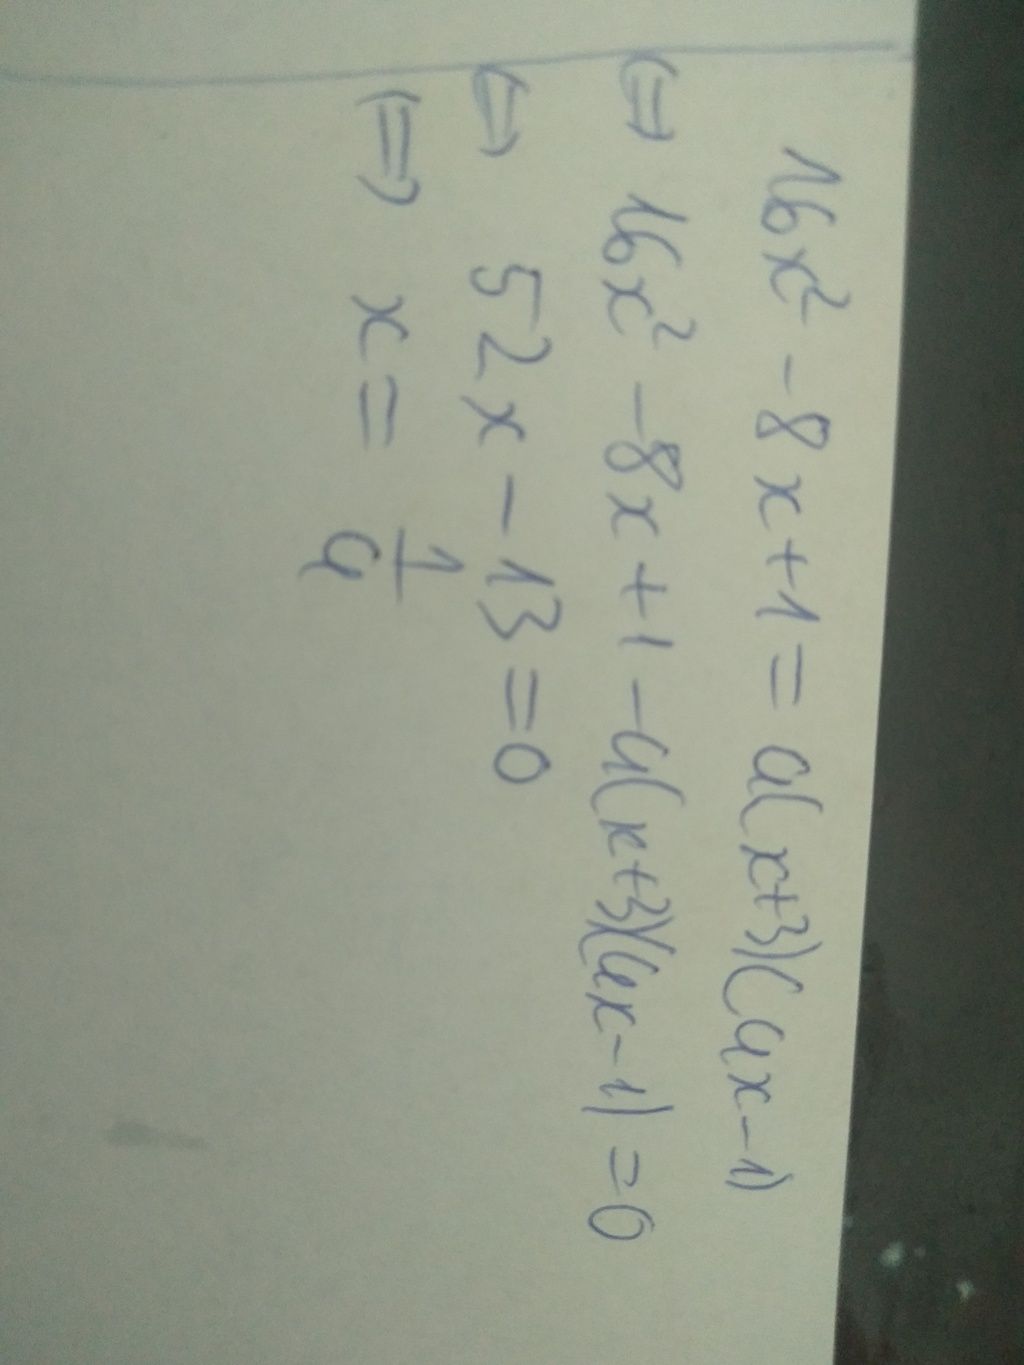 16x² - 8x + 1 = 4(x+3)(4x-1)
⇔ 16x² - 8x + 1 - 4(x+3)(4x-1) = 0
⇔ 52x - 13 = 0
⇔ x = 1/4